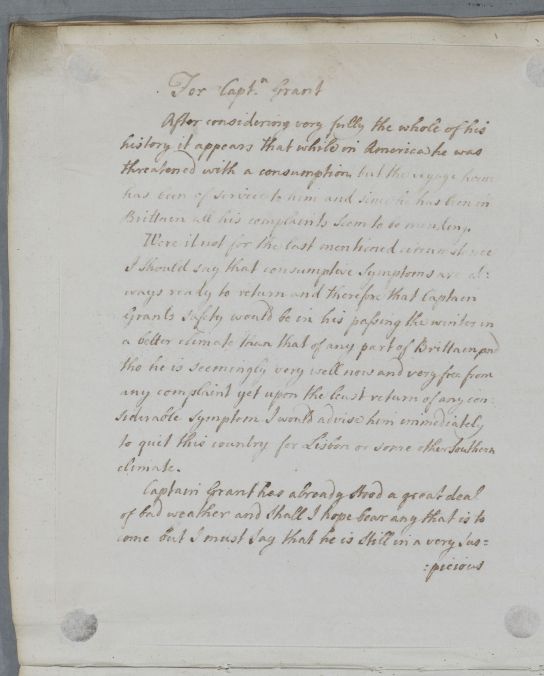 For Capt.n Grant
After considering very fully the whole of his
history it appears that while in America he was
threatened with a consumption, but the voyage home
has been of service to him and since he has been in
Brittain all his complaints seem to be mending.
Were it not for the last mentioned circumstance
I should say that consumptive symptoms are al:
ways ready to return and therefore that Captain
Grants safety would be in his passing the winter in
a better climate than that of any part of Brittain, and
tho he is seemingly very well now and very free from
any complaint yet upon the least return of any con
siderable symptom I would advise him immediately
to quit this country for Lisbon or some other Southern
climate.
Captain Grant has already stood a great deal
of bad weather and shall I hope bear any that is to
come but I must say that he is still in a very sus=
:picious